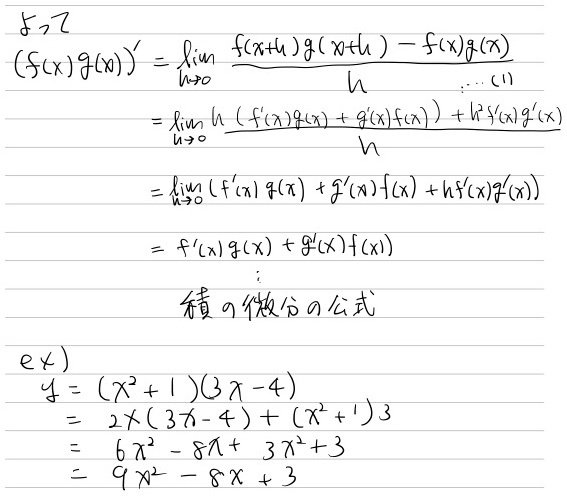 よって
(f(x)g(x))' = lim h→0 f(x+h)g(x+h) − f(x)g(x) / h ‥‥(1)
= lim h→0 h(f'(x)g(x) + g'(x)f(x)) + h²f'(x)g'(x) / h
= lim h→0 (f'(x)g(x) + g'(x)f(x) + hf'(x)g'(x))
= f'(x)g(x) + g'(x)f(x)
⋮
積の微分の公式
ex)
y = (x²+1)(3x−4)
= 2x(3x−4) + (x²+1)3
= 6x² − 8x + 3x²+3
= 9x² − 8x + 3